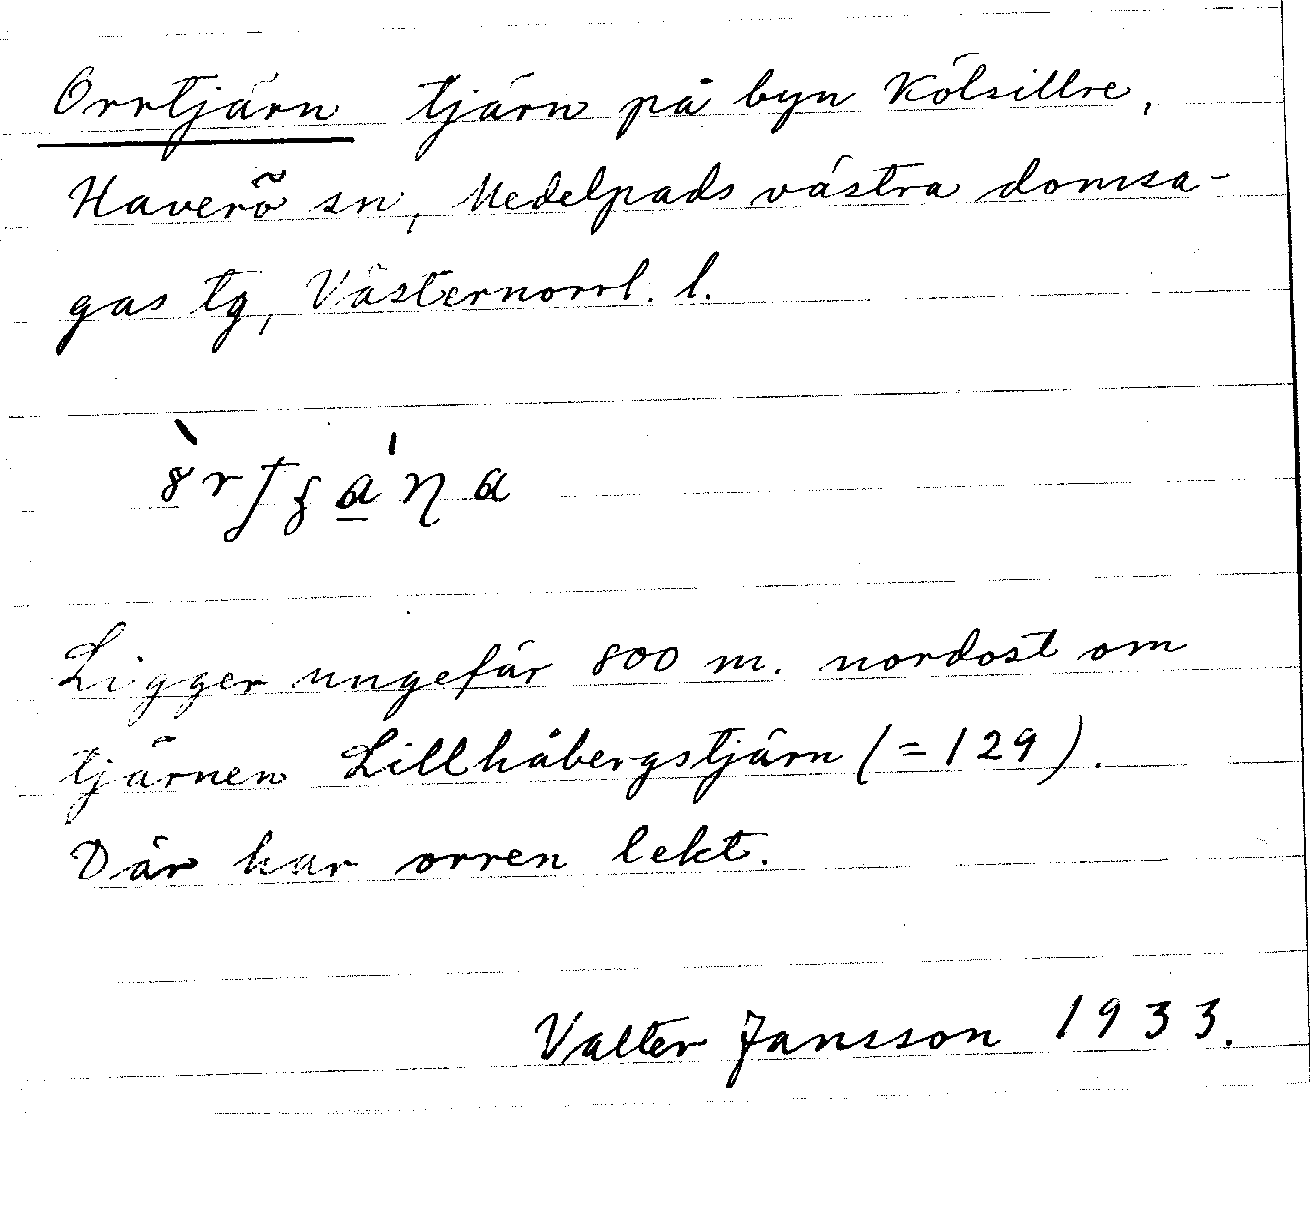 Orrtjärn tjärn på byn Kölsillre,
Haverö sn, Medelpads västra domsa-
gas tg, Västernorrl. l.
Ligger ungefär 800 m. nordost om
tjärnen Lillhåbergstjärn (=129).
Där har orren lekt.
Valter Jansson 1933.